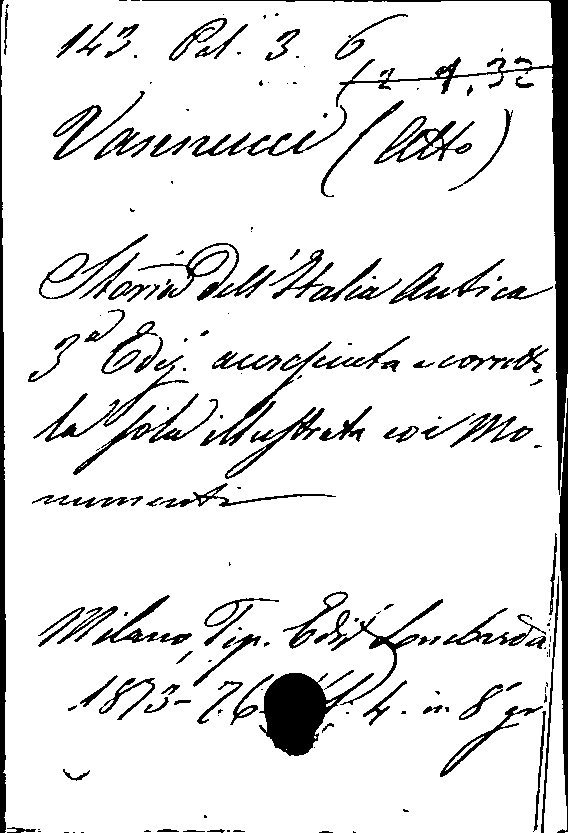 143. Pal. 3. 6
12. 9. 32
Vannucci (Atto)
Storia dell'Italia Antica
3a Ediz. accresciuta e corretta,
la sola illustrata coi Mo-
numenti
Milano, Tip. Edit. Lombarda
1873-76 4. in 8° gr